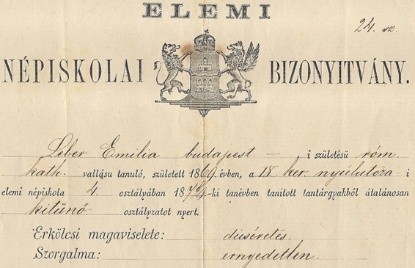 ELEMI
24. sz.
NÉPISKOLAI BIZONYITVÁNY.
Liber Emilia budapest-i születésü róm.
kath. vallásu tanuló, született 18 évben, a ker. nyúlutcza-i
elemi népiskola 4 osztályában 187 -ki tanévben tanitott tantárgyakból általánosan
kitünő osztályzatot nyert.
Erkölcsi magaviselete: dicséretes
Szorgalma: ernyedetlen